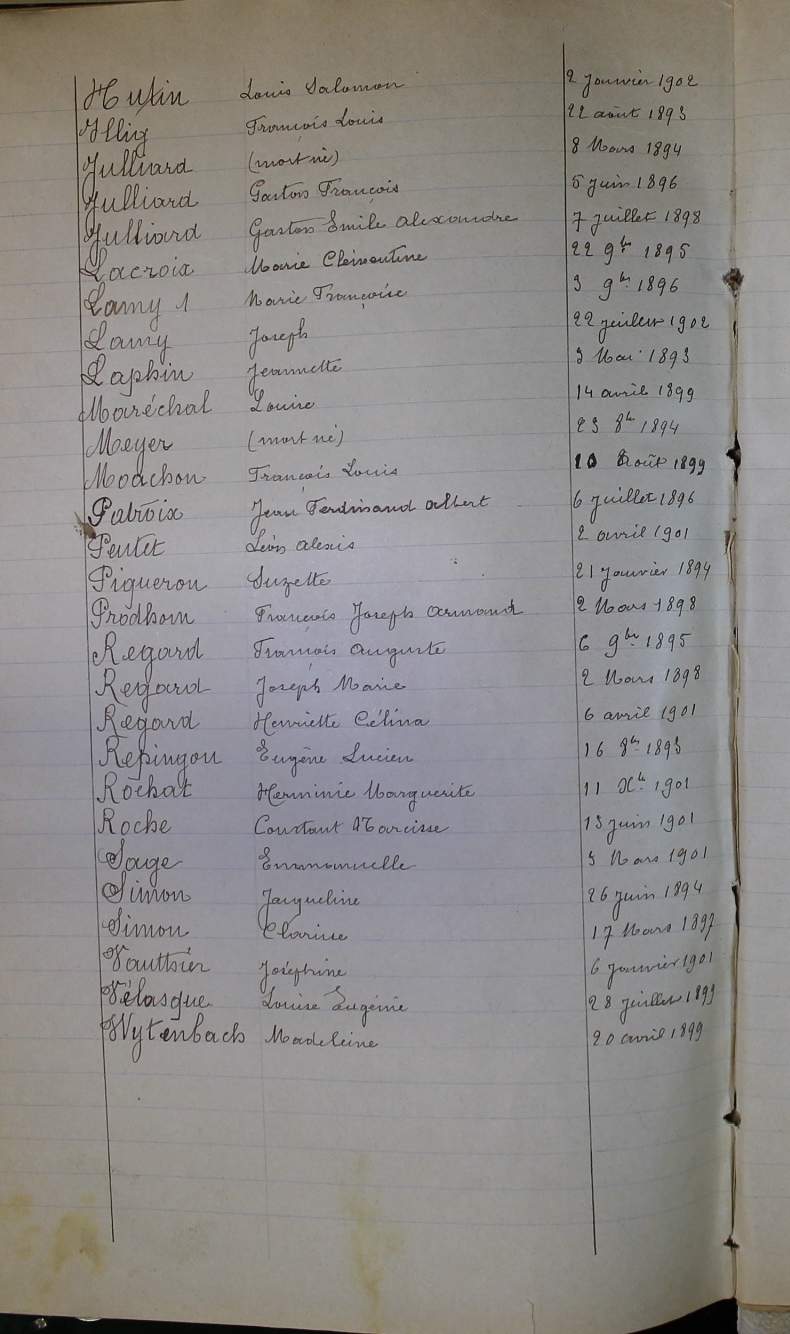 Hutin Louis Salomon 2 Janvier 1902
Illig François Louis 22 août 1893
Julliard (mort né) 8 Mars 1894
Julliard Gaston François 5 juin 1896
Julliard Gaston Emile Alexandre 7 juillet 1898
Lacroix Marie Clémentine 22 9bre 1895
Lamy 1 Marie Françoise 3 9bre 1896
Lamy Joseph 22 juillet 1902
Laphin Jeannette 3 Mai 1893
Maréchal Louise 14 avril 1899
Meyer (mort né) 23 8bre 1894
Moachon François Louis 10 Août 1899
Patroix Jean Ferdinand Albert 6 juillet 1896
Pentet Léon Alexis 2 avril 1901
Pigueron Suzette 21 Janvier 1894
Prodhom François Joseph Armand 2 Mars 1898
Regard François Auguste 6 9bre 1895
Regard Joseph Marie 2 Mars 1898
Regard Henriette Célina 6 avril 1901
Repingon Eugène Lucien 16 8bre 1893
Rochat Herminie Marguerite 11 Xbre 1901
Roche Constant Narcisse 13 juin 1901
Sage Emmanuelle 3 Mars 1901
Simon Jacqueline 26 juin 1894
Simon Clarisse 17 Mars 1897
Vauthier Joséphine 6 Janvier 1901
Vélasque Louise Eugénie 28 juillet 1899
Wytenbach Madeleine 20 avril 1899